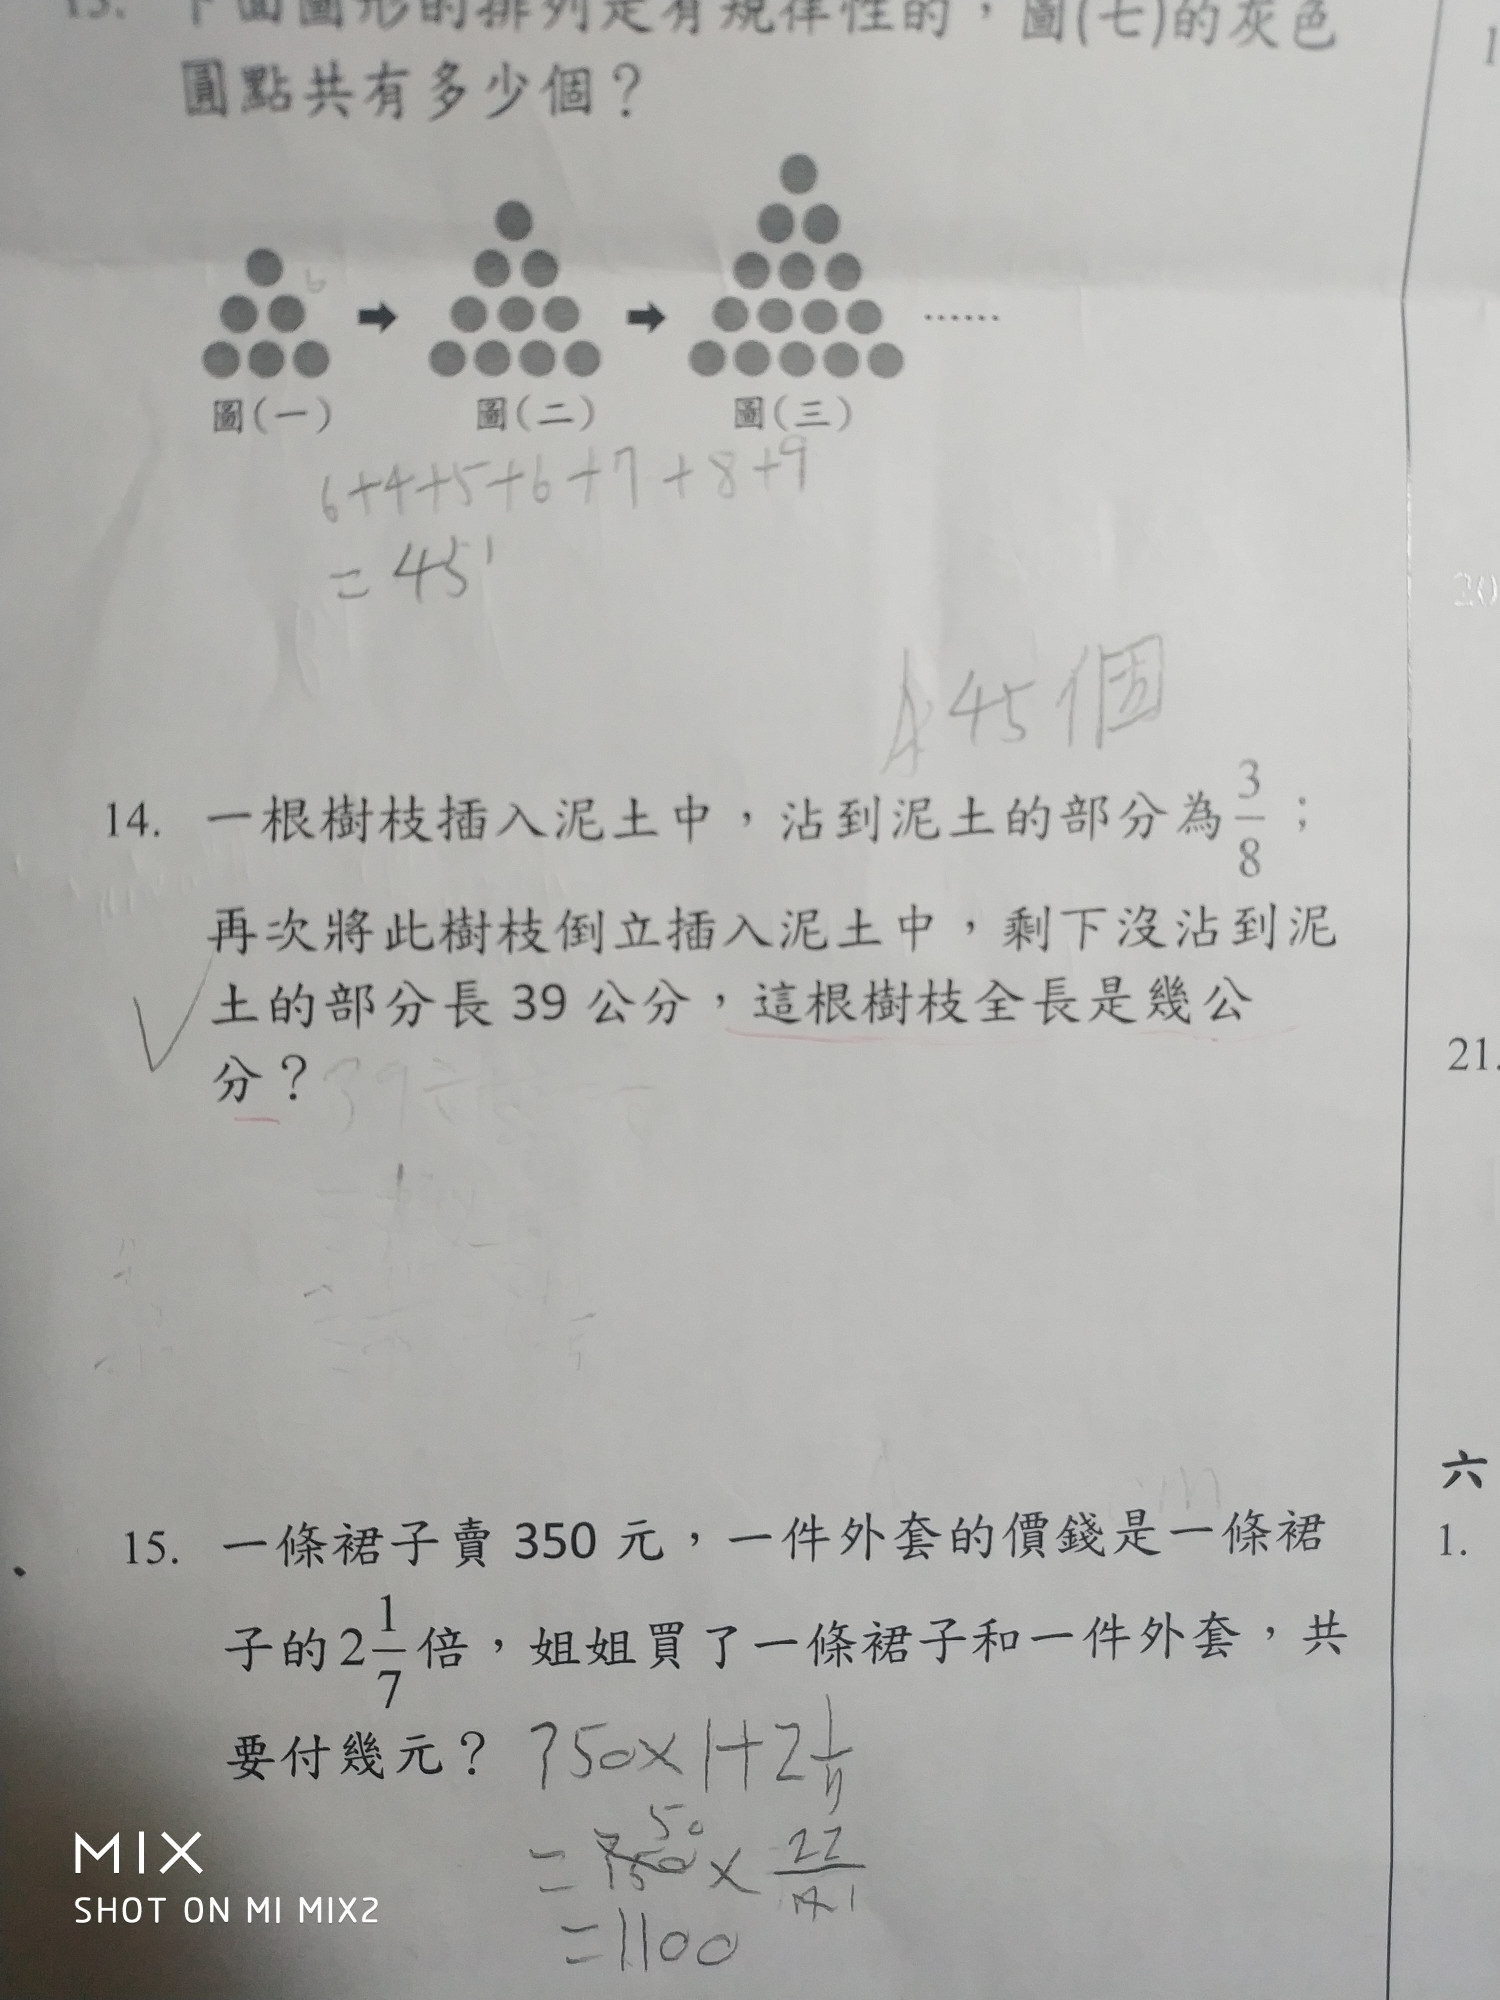 13. 下面圖形的排列是有規律性的，圖(七)的灰色
圓點共有多少個？
6
圖(一)
圖(二)
圖(三)
······
6+4+5+6+7+8+9
=45
A:45個
14. 一根樹枝插入泥土中，沾到泥土的部分為3/8；
再次將此樹枝倒立插入泥土中，剩下沒沾到泥
土的部分長 39 公分，這根樹枝全長是幾公
分？
39÷
15. 一條裙子賣 350 元，一件外套的價錢是一條裙
子的2 1/7倍，姐姐買了一條裙子和一件外套，共
要付幾元？ 350×1+2 1/7
=350 50×22/7 1
=1100
20
21.
六
1.
MIX
SHOT ON MI MIX2